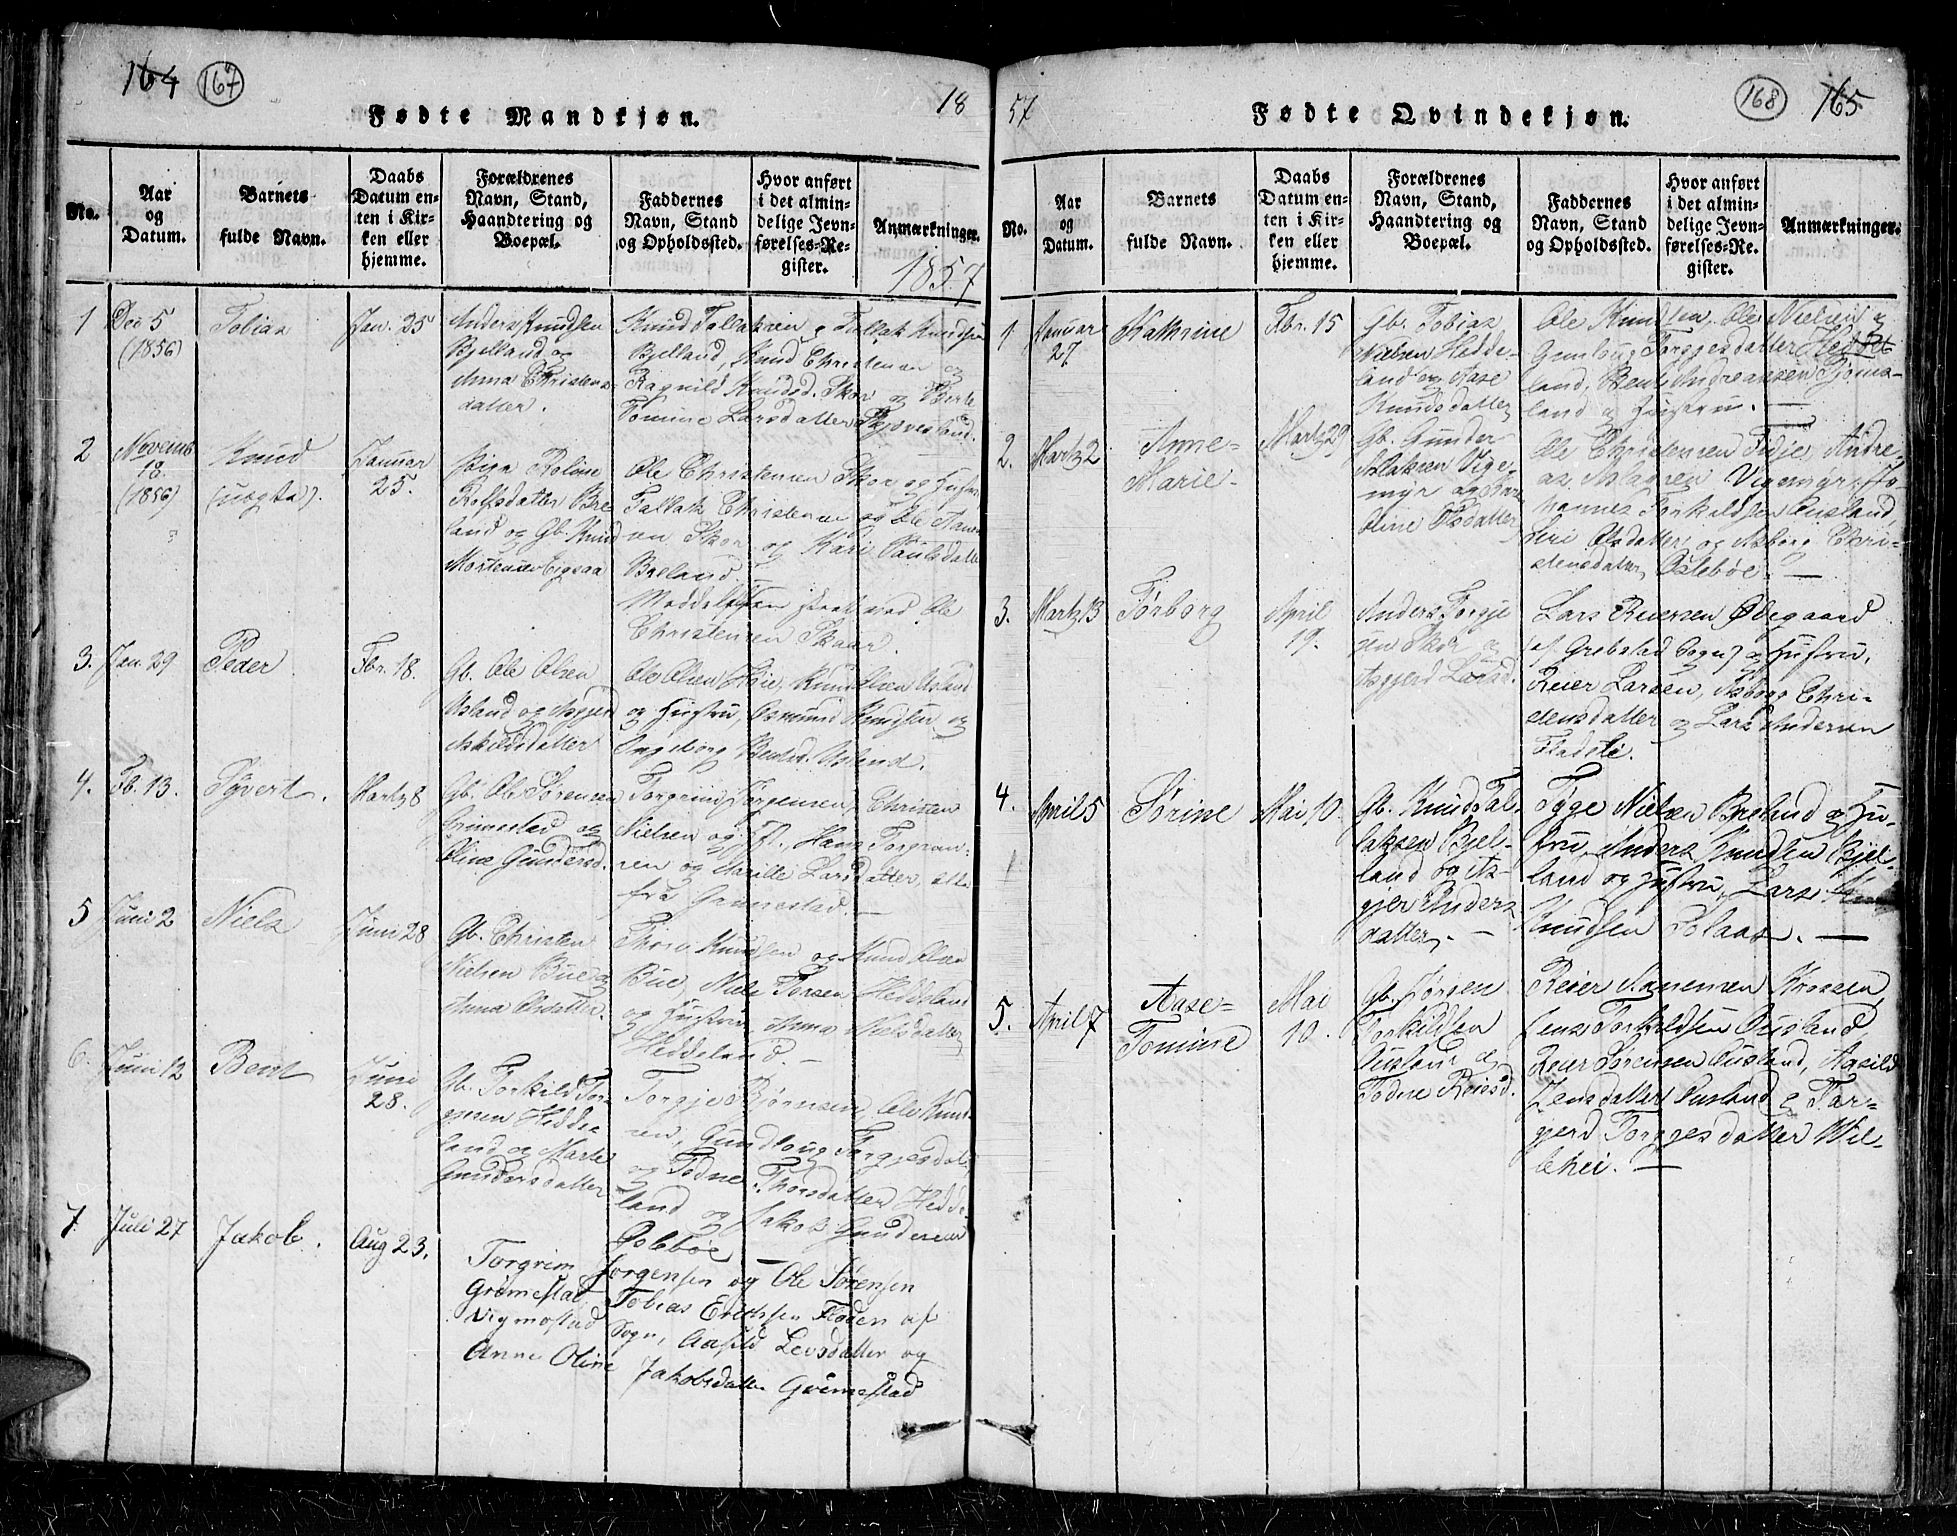 164 167
18
Fødte Mandkjøn.
No.
Aar
og
Datum.
Barnets
fulde Navn.
Daabs
Datum en-
ten i Kir-
ken eller
hjemme.
Forældrenes
Navn, Stand,
Haandtering og
Boepæl.
Faddernes
Navn, Stand
og Opholdssted.
Hvor anført
i det almin-
delige Jevn-
førelses-Re-
gister.
Anmærkninger.
1857
1
Dec 5
(1856)
Tobias
Jan. 25
Anders Knudsen
Bjelland og
Anna Christens-
datter.
Knud Tallaksen, Tallak Knudsen
Bjelland, Knud Christensen og
Ragnild Knudsd. Skor og Birte
Tomine Larsdatter
2
Novemb
18.
(1856)
Knud
(uægta).
Januar
25.
Pige
Rolfsdatter Bre
land og Gb. Knud
Mortensen Eigsaa
Ole Christensen Skor og Hustru
Tallak Christensen og Ole
Skor og Kari Paulsdatter
Breland.
Christensen Skaar.
3.
Jan. 29
Peder
Fbr. 18.
Gb. Ole Olsen
Asland og Asgjer
Askildsdatter
Ole Olsen Høie, Knud Olsen Asland
og Hustru, Osmund Knudsen og
Ingeborg Bentsd. Asland.
4.
Fb. 13.
Syvert.
Martz 8
Gb. Ole Sørensen
Grimestad og
Oline Gundersd.
Torgrim Jørgensen, Christen
Nielsen og H., Hans Torgrim-
sen og Larsdatter, alle
fra Grimestad.
5
Juni 2
Niels
Juni 28
Gb. Christen
Nielsen Bue og
Anna Olsdatter.
Thore Knudsen og Knud Olsen
Bue, Niels Torsen Heddeland
og Hustru, Anna Nielsdatter
Heddeland.
6.
Juni 12
Bent
Juni
28.
Gb. Torkild Tor-
gjesen Hedde
land og Marte
Gundersdatter
Torgje Bjørnsen, Ole Knud-
sen, Gundloug Torgjesdat.
og Todne Thorsdatter Hedde-
land og Jakob Gundersen
Oslebøe
7.
Juli 27
Jakob.
Aug 23.
Torgrim Jørgensen og Ole Sørensen
Grimestad Tobias Floden af
Vigmostad Sogn, Aasild Levsdatter og
Anne Oline Jakobsdatter Grimestad
57
168 165
Fødte Qvindekjøn.
No.
Aar
og
Datum.
Barnets
fulde Navn.
Daabs
Datum en-
ten i Kir-
ken eller
hjemme.
Forældrenes
Navn, Stand,
Haandtering og
Boepæl.
Faddernes
Navn, Stand
og Opholdssted.
Hvor anført
i det almin-
delige Jevn-
førelses-Re-
gister.
Anmærkninger.
1
Januar
27
Kathrine
Fbr. 15
Gb. Tobias
Nielsen Hedde-
land og Aase
Knudsdatter
Ole Knudsen, Ole Nielsen og
Gunloug Torgjesdatter Hedde-
land, Bent Andreassen Tjoms-
land og Hustru.
2.
Martz 2
Anne-
Marie
Martz 29
Gb. Gunder
Aslaksen Vige-
myr og
Oline Olsdatter
Ole Christensen Fidje, Andre-
as Aslagsen Vigemyr, Jo-
hannes Torkildsen Ousland,
Siri Olsdatter og Asborg Chri-
stensdatter Oslebøe.
3.
Martz 13
Torborg
April
19.
Anders Torgje
sen Skor og
Asgjerd Larsd.
Lars Reiersen Ødegaard
(af Grebstad Sogn) og Hustru,
Reier Larsen, Asborg Chri-
stensdatter og Lars Andersen
4.
April 5
Sørine
Mai 10.
Gb. Knud Tal-
laksen Bjel-
land og As-
gjer Anders
datter.
Tyge Nielsen Breland og Hu-
stru, Anders Knudsen Bjel-
land og Hustru, Lars
Knudsen
5.
April 7
Aase-
Tomine
Mai
10.
Gb. Jørgen
Torkildsen
Ousland og
Todne Reiersd.
Reier Krossen,
Jens Torkildsen Ousland
Reier Sørensen Ousland, Aasild
Jensdatter Ousland & Tar-
gjerd Torgjesdatter